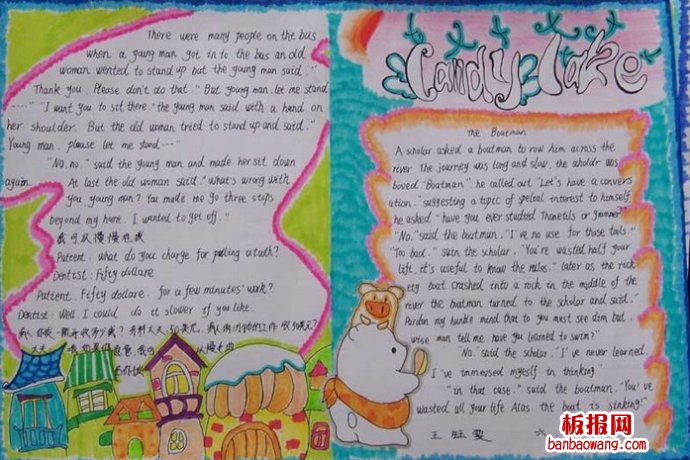 There were many people on the bus
when a young man got in to the bus an old
woman wented to stand up but the young man said."
Thank you. Please don't do that." But young man. let me stand
----" "I want you to sit there." the young man said with a hand on
her shoulder. But the old woman tried to stand up and said."
Young man. please let me stand----
"No. no." said the young man and made her sit down
again. At last the old woman said. "What's wrong with
you young man? You made me go three stops
beyond my home. I wanted to get off."
我可以慢慢
Patient: what do you charge for pulling a tooth?
Dentist: Fifty dollare
Patient: Fifty dollare. for a few minutes' work?
Dentist: Well. I could do it slower if you like.
Candy lake
The Boatman
A scholar asked a boatman to row him across the
river The journey was long and slow. the scholar was
boved "Boatman". he called out "Let's have a convers
ution." suggesting a topic of interest to himself
he asked "have you ever studied or grammer?"
"No." said the boatman. "I've no use for those tools."
"Too bad." said the scholar. "You're wasted half your
life. it's useful to know the rules." later as the rick
ety boat crashed into a rock in the middle of the
river the boatman turned to the scholar and said."
Pardon my humble mind that to you must see dim but.
wise man tell me. have you learned to swim?"
"No." said the scholar. "I've never learned.
I've immersed myself in thinking"
"in that case." said the boatman. "You've
wasted all your life Alas the boat is sinking!"
王 雯 六
板报网
banbaowang.com